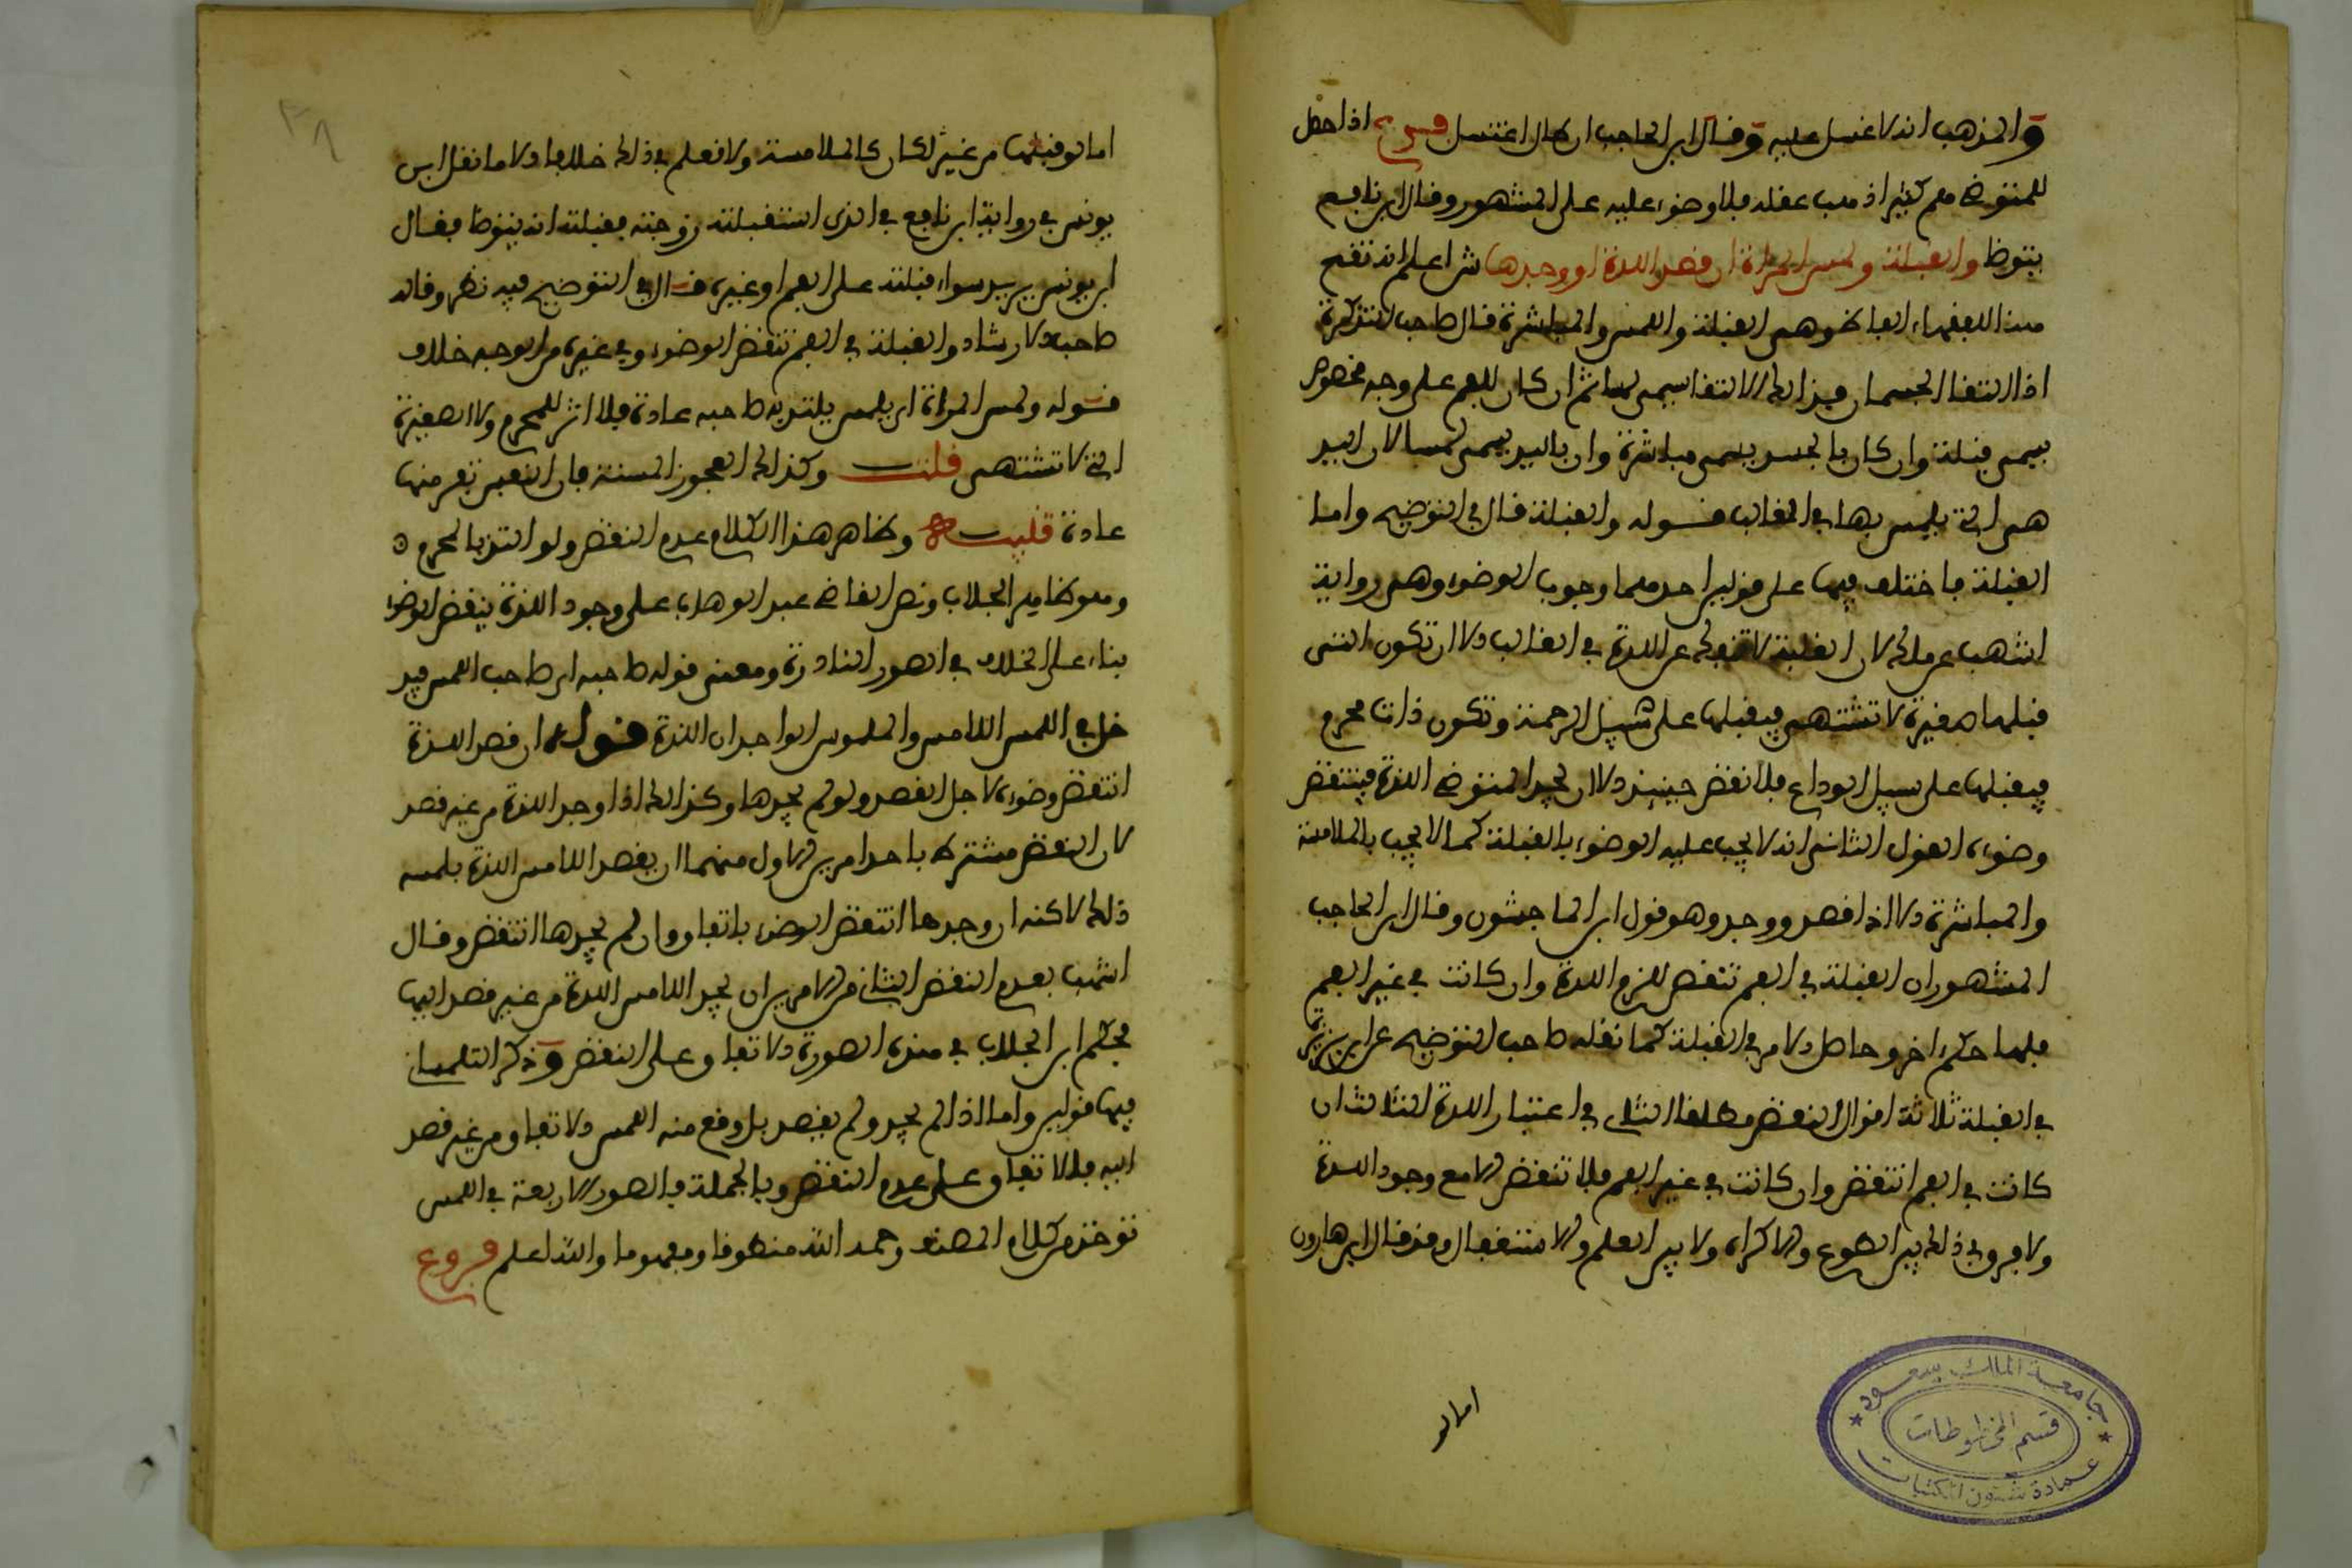 والمذهب انه لا غسل عليه وقال ابن الحاجب ان كان اغتسل فرع اذا حصل
للمتوضئ هم كثير اذهب عقله فلا وضوء عليه على المشهور وقال ابن نافع
يتوضا والقبلة ولمس المراة ان قصد اللذة او وجدها ش اعلم انه تقع
هنا للفقهاء الفاظ وهي القبلة واللمس والمباشرة قال صاحب التذكرة
اذا التقا الجسمان فذلك الالتقا يسمى لمسا ثم ان كان للفم على وجه مخصوص
يسمى قبلة وان كان بالجسد يسمى مباشرة وان باليد يسمى لمسا لان اليد
هي التي يلمس بها في الغالب قوله والقبلة قال في التوضيح واما
القبلة فاختلف فيها على قولين احدهما وجوب الوضوء وهي رواية
اشهب عن مالك لان القبلة لا تنفك عن اللذة في الغالب الا ان تكون التي
قبلها صغيرة لا تشتهى فيقبلها على سبيل الرحمة وتكون ذات محرم
فيقبلها على سبيل الوداع فلا نقض حينئذ الا ان يجد المتوضئ اللذة فينتقض
وضوءه القول الثاني انه لا يجب عليه الوضوء بالقبلة كما لا يجب بالملامسة
والمباشرة الا اذا قصد ووجد وهو قول ابن الماجشون وقال ابن الحاجب
المشهور ان القبلة في الفم تنقض للزوم اللذة وان كانت في غير الفم
فلها حكم اخر وحاصل الامر في القبلة كما نقله صاحب التوضيح عن ابن بزيزة
في القبلة ثلاثة اقوال النقض مطلقا الثاني في اعتبار اللذة الثالث ان
كانت في الفم انتقض وان كانت في غير الفم فلا تنقض الا مع وجود اللذة
ولا فرق في ذلك بين الطوع والاكراه ولا بين العلم والاستغفال وقد قال ابن هارون
اما لو
اما لو قبلها من غير لكان كالملامسة ولا نعلم في ذلك خلافا الا ما نقل ابن
يونس في رواية ابن نافع في الذي استغفلته زوجته فقبلته انه يتوضا فقال
ابن يونس يريد سواء قبلته على الفم او غيره قال في التوضيح فيه نظر وقال
صاحب الارشاد والقبلة في الفم تنقض الوضوء وفي غيره من الوجه خلاف
قوله ولمس المراة ان بلمس يلتذ به صاحبه عادة فلا اثر للمحرم ولا الصغيرة
التي لا تشتهى قلت وكذلك العجوز المسنة فان النفس تنفر منها
عادة قلت وظاهر هذا الكلام عدم النقض ولو التذ بالمحرم
وهو ظاهر الجلاب ونص القاضي عبد الوهاب على وجود اللذة ينقض الوضوء
بناء على الخلاف في الصور النادرة ومعنى قوله صاحبه اي صاحب اللمس فيد
خل في اللمس اللامس والملموس الواجدان اللذة قوله ان قصد اللذة
انتقض وضوءه لاجل القصد ولو لم يجدها وكذلك اذا وجد اللذة من غير قصد
لان النقض مشترك باحد امرين الاول منهما ان يقصد اللامس اللذة بلمسه
ذلك لاكنه ان وجدها انتقض الوضوء باتفاق وان لم يجدها انتقض وقال
اشهب بعدم النقض الثاني من الامرين ان يجد اللامس اللذة من غير قصد اليها
فحكم ابن الجلاب في هذه الصورة الاتفاق على النقض وذكر التلمساني
فيها قولين واما اذا لم يجد ولم يقصد بل وقع منه اللمس الاتفاق ومن غير قصد
اليه فالاتفاق على عدم النقض وبالجملة فالصور الاربعة في اللمس
توخذ من كلام المصنف رحمه الله منطوقا ومفهوما والله اعلم فروع
جامعة الملك سعود
قسم المخطوطات
عمادة شئون المكتبات